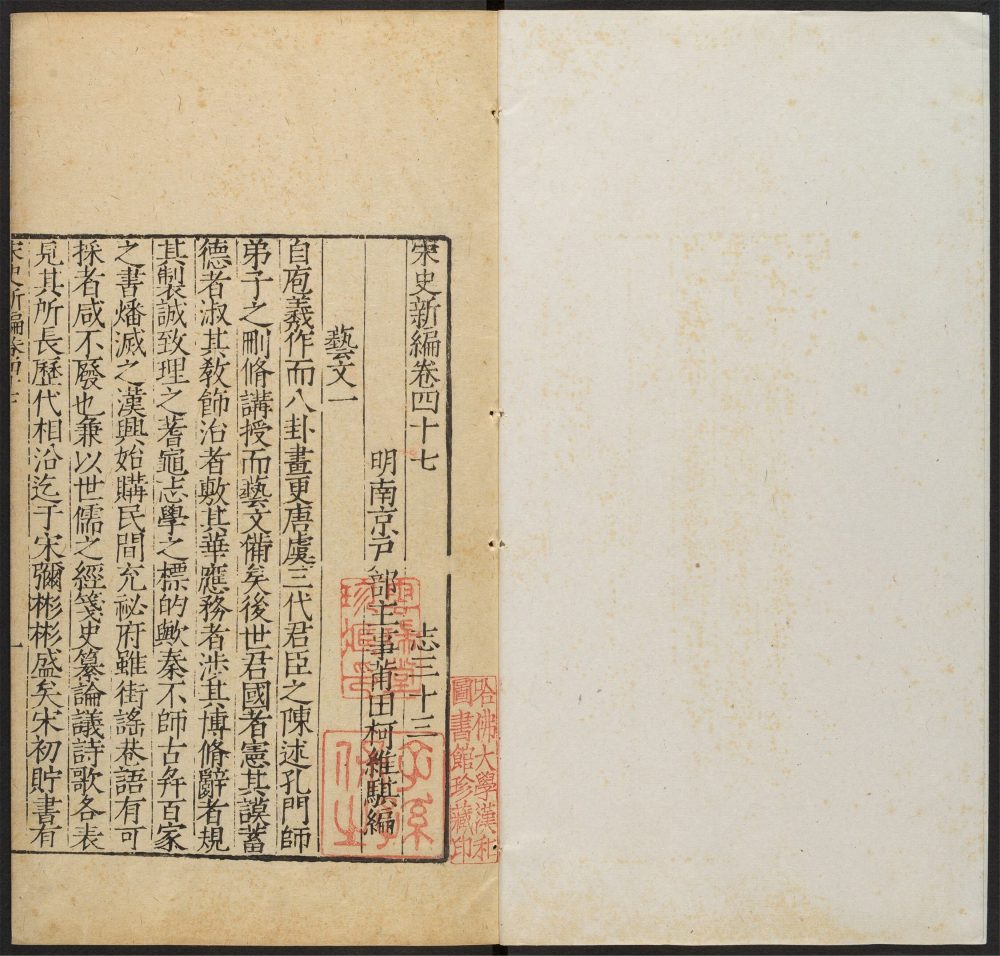 宋史新編卷四十七 志三十三
明南京戶部主事莆田柯維騏編
藝文一
自庖羲作而八卦畫更唐虞三代君臣之陳述孔門師
弟子之刪脩講授而藝文備矣後世君國者憲其謨蓄
德者淑其敎飾治者敷其華應務者涉其博脩辭者規
其製誠致理之蓍龜志學之標的歟秦不師古幷百家
之書燔滅之漢興始購民間充祕府雖街謠巷語有可
採者咸不廢也兼以世儒之經箋史纂論議詩歌各表
見其所長歷代相沿迄于宋彌彬彬盛矣宋初貯書有
宋史新編卷四十七
一
哈佛大學漢和
圖書館珍藏印